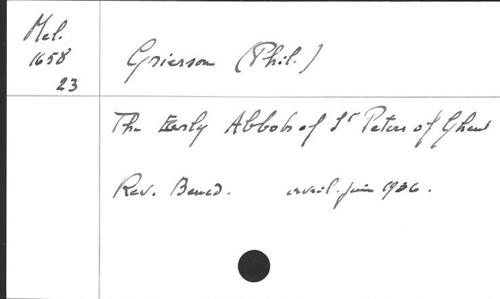 Mel.
1658
23
Grierson (Phil.)
The Early Abbots of St Peters of Ghent
Rev. Bened. avril-juin 1936.